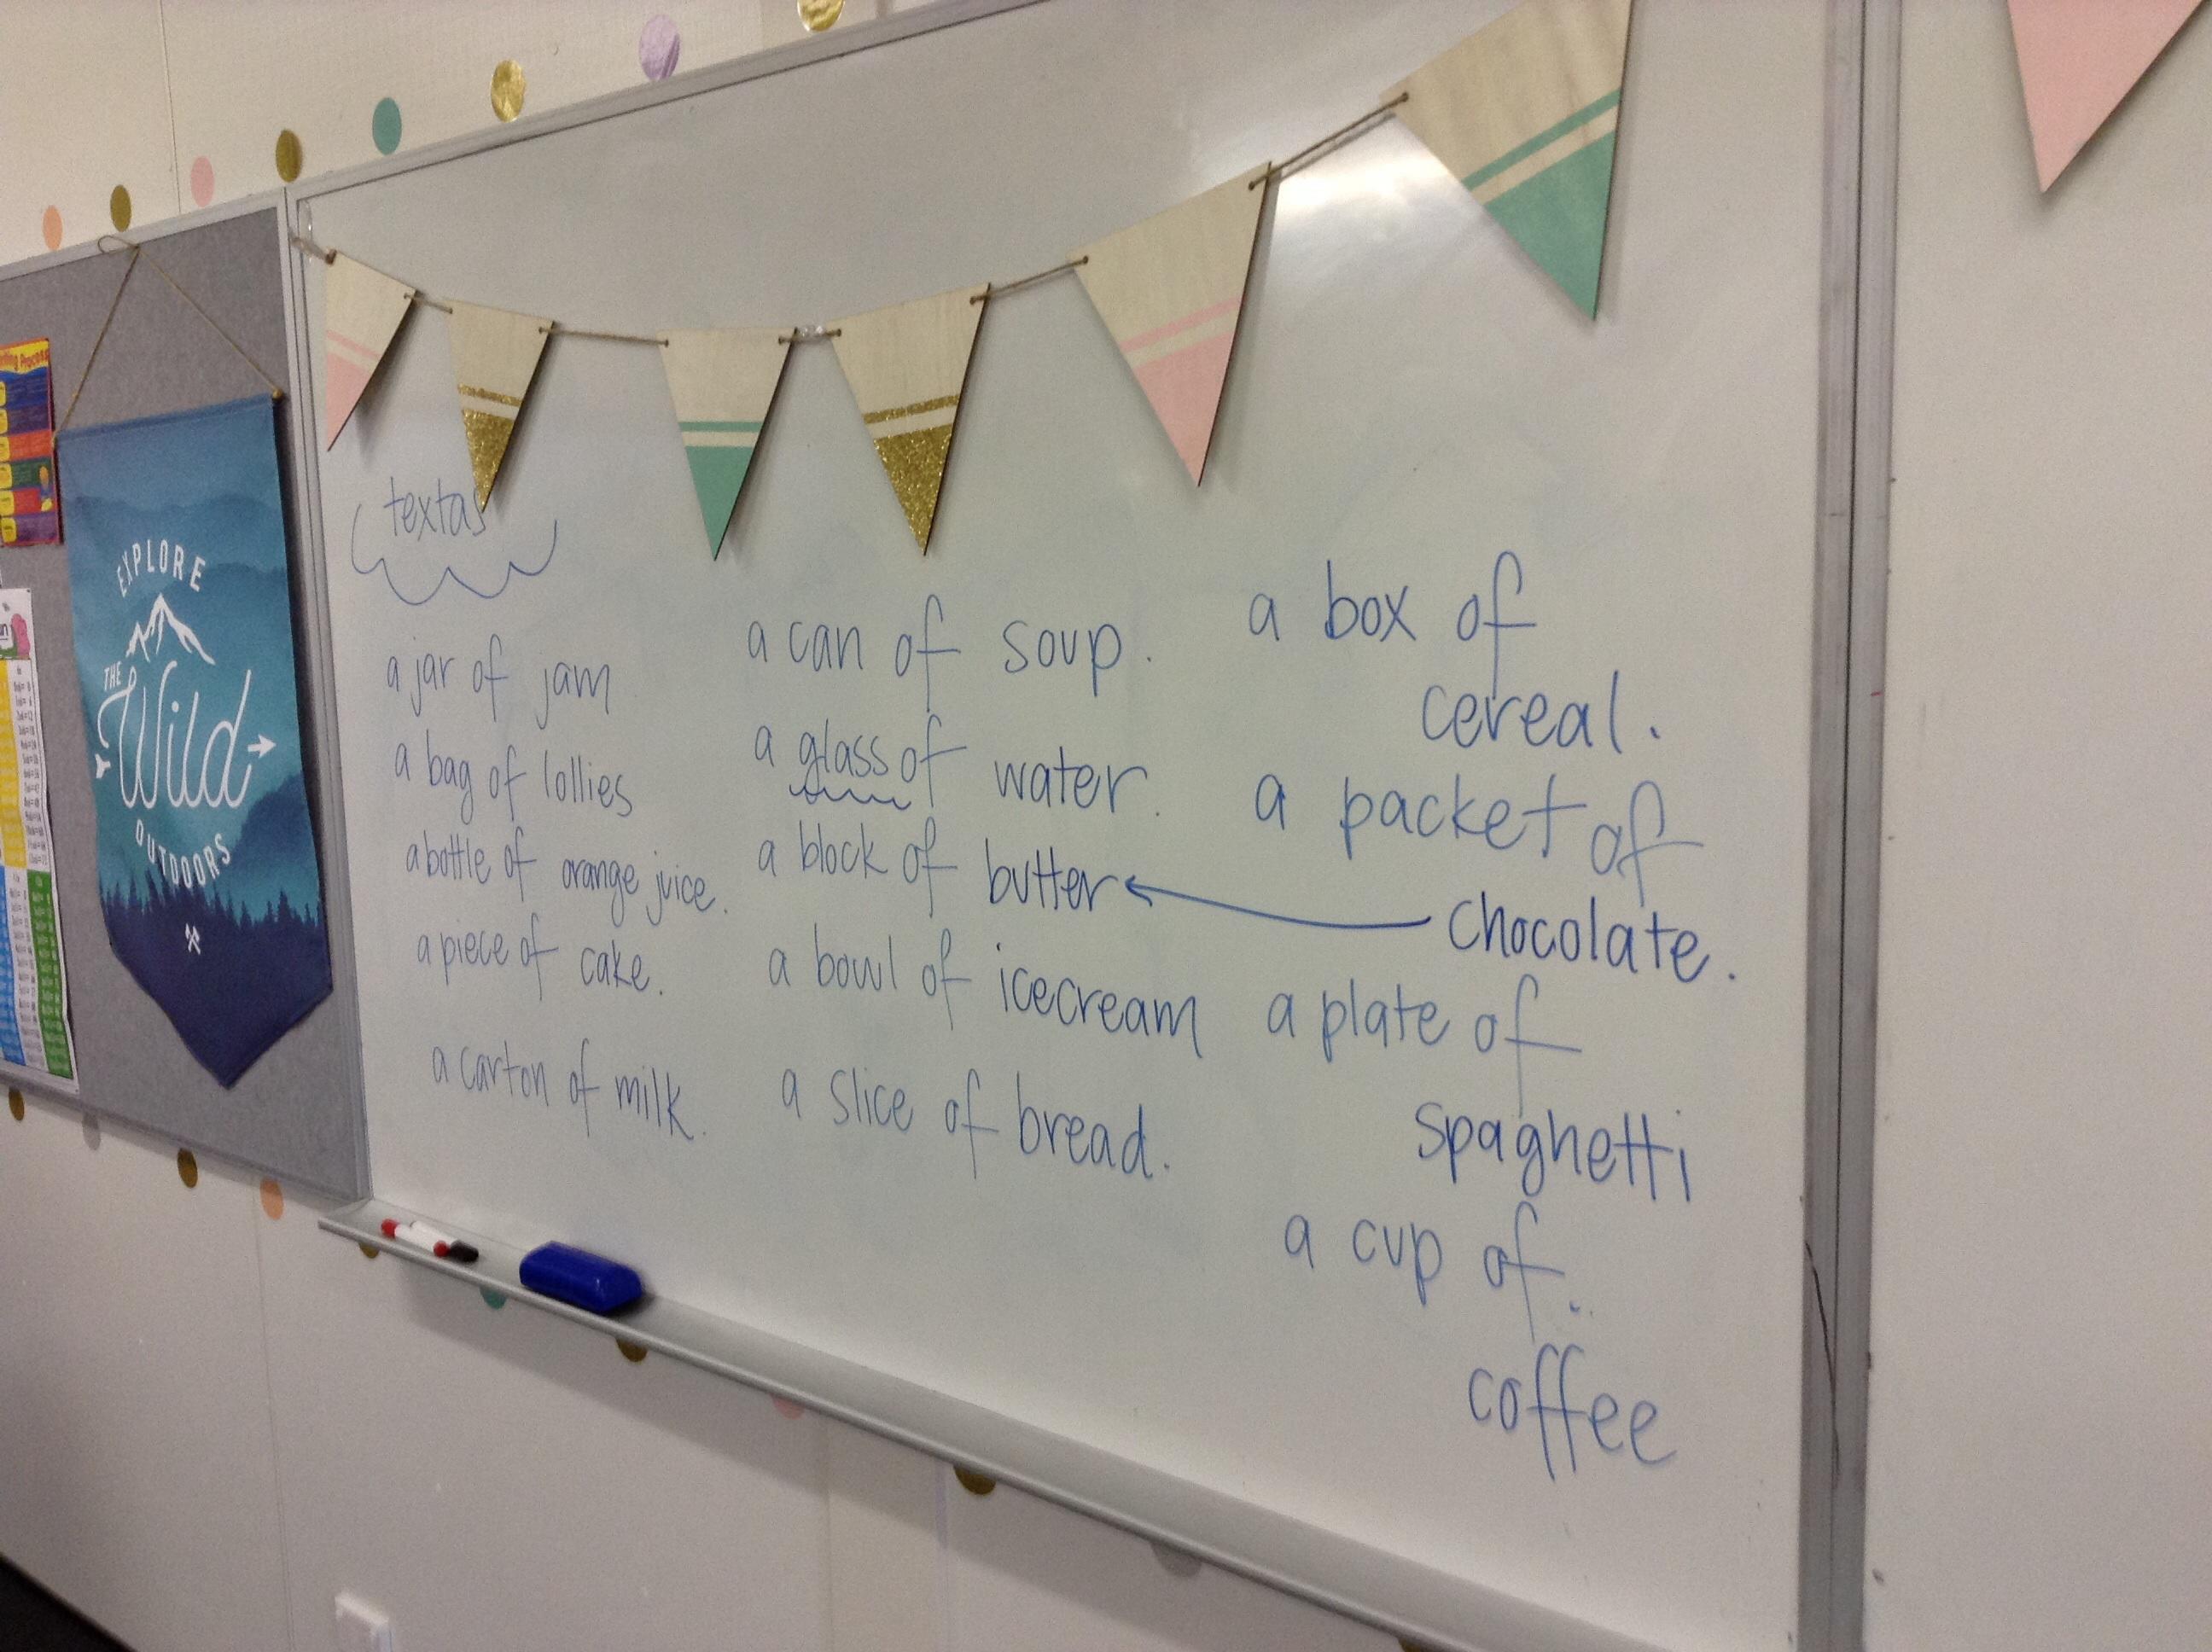 EXPLORE
THE
Wild
OUTDOORS
textas
a jar of jam
a bag of lollies
a bottle of orange juice.
a piece of cake.
a carton of milk.
a can of soup.
a glass of water.
a block of butter
a bowl of icecream
a slice of bread.
a box of
cereal.
a packet of
chocolate.
a plate of
spaghetti
a cup of
coffee